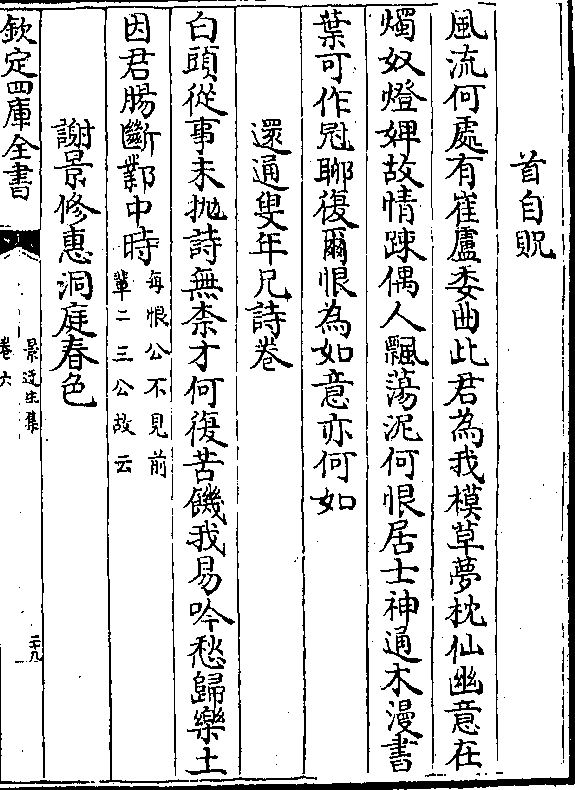 首自貺
風流何處有崔盧委曲此君為我模草夢枕仙幽意在
燭奴燈婢故情踈偶人飄蕩泥何恨居士神通木漫書
葉可作冠聊復爾恨為如意亦何如
還通叟年兄詩卷
白頭從事未抛詩無柰才何復苦饑我易吟愁歸樂土
因君腸斷鄴中時每恨公不見前
輩二三公故云
謝景修惠洞庭春色
欽定四庫全書
景迂生集
卷六
二十九